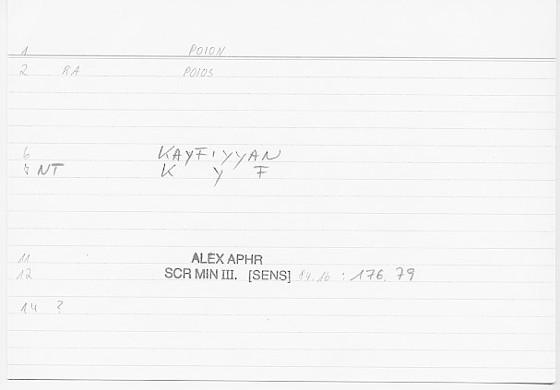 1 POION
2 RA POIOS
6 KAYFIYYAN
NT K Y F
11 ALEX APHR
12 SCR MIN III. [SENS] 14.16 : 176.79
14 ?